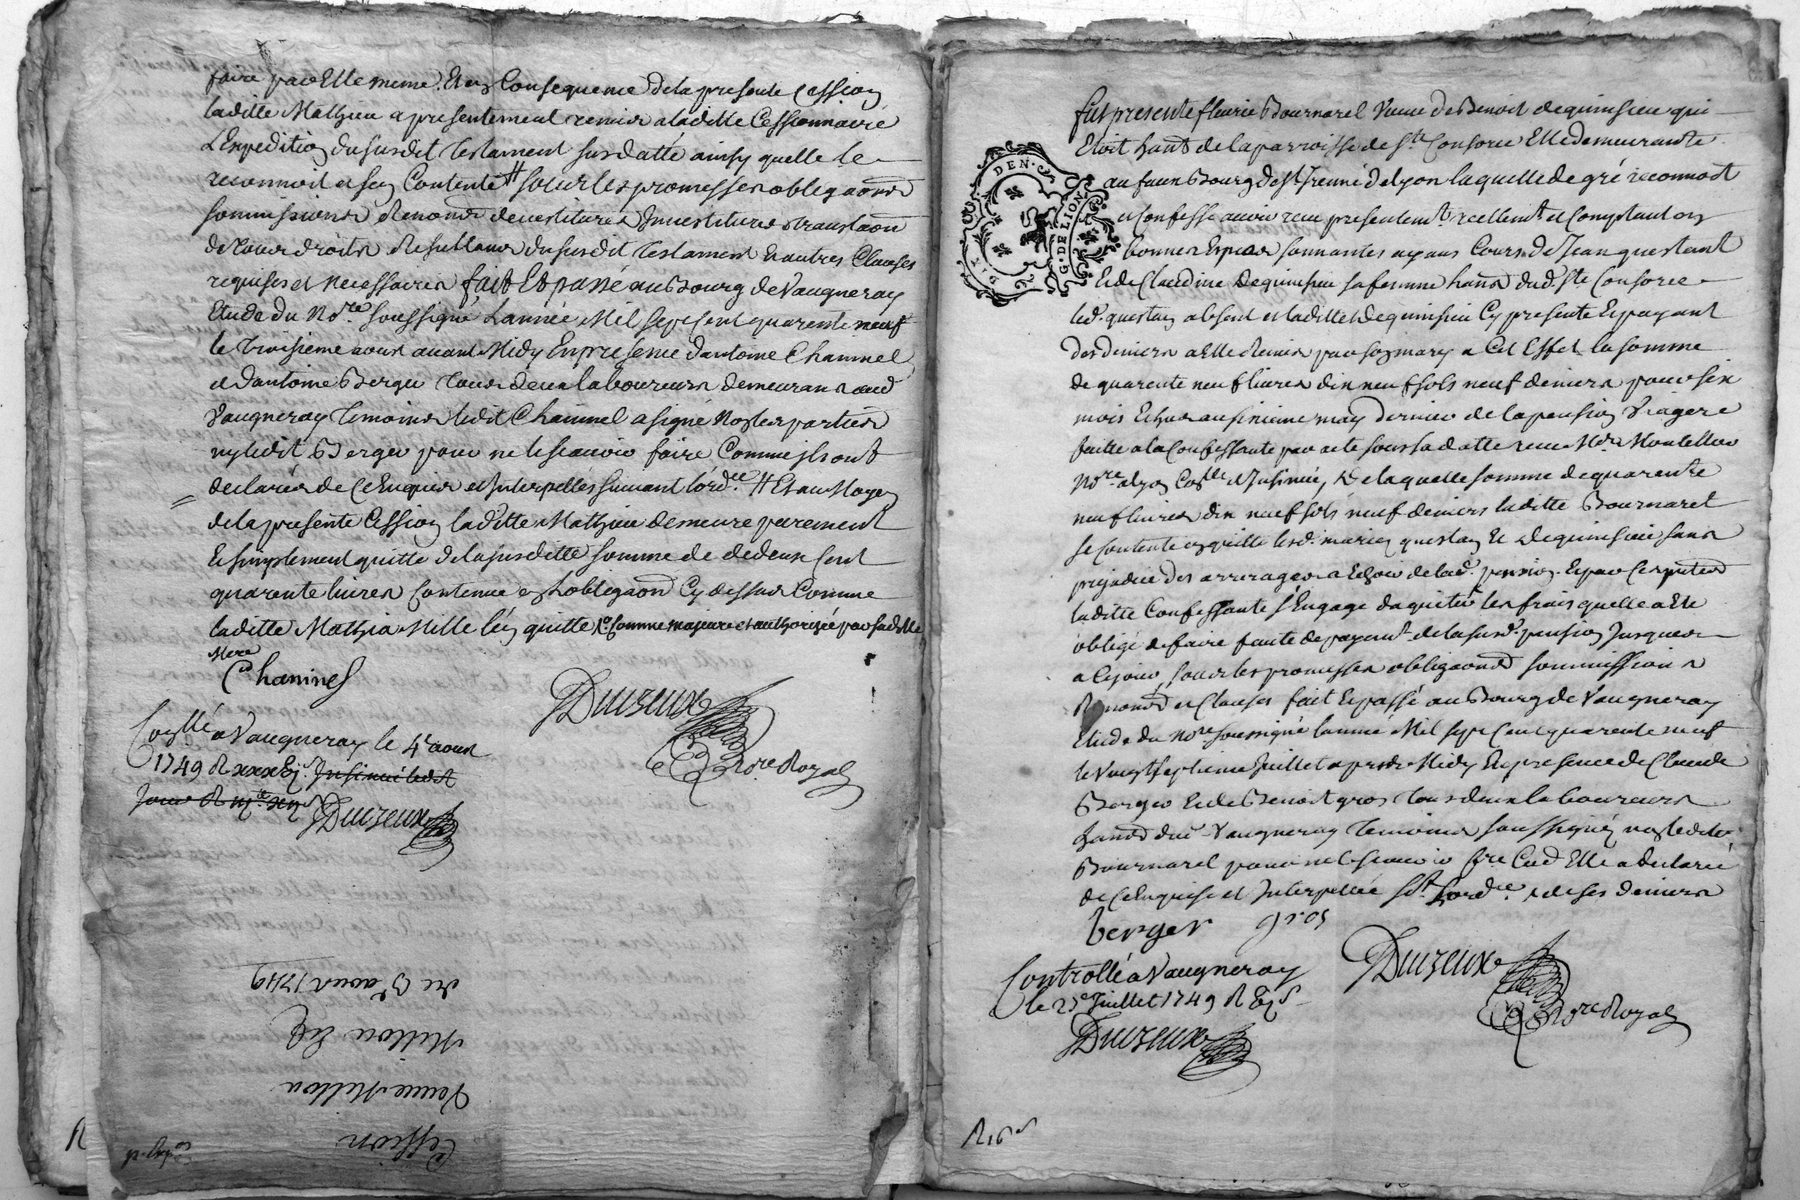 faire par Elle meme. Et en Consequence de la presente Cession
laditte Mathieu a presentement remis a laditte Cessionnaire
L'Expedition du susdit testament susdatté ainsy quelle le
reconnoit et sen Contente # sous les promesses obligaons
soumissions Renonōns devestitures Investitures translaōn
de tous droits Resultans du susdit testament et autres Clauses
requises et necessaires fait Et passé au Bourg de Vaugneray
Etude du Nore soussigné L'année Mil sept cent quarente neuf
le troisieme aout avant Midy En presence d'antoine Chaninel
et d'antoine Berger tous deux laboureurs demeurans aud
Vaugneray temoins ledit Chaninel a signé Non les parties
ny ledit Berger pour ne le scavoir faire Comme ils ont
declarés de Ce Enquis et Interpellés suivant lordce # Et au Moyen
de la presente Cession laditte Mathieu demeure purement
Et simplement quitte de la susditte somme de deux Cent
quarente livres Contenue en l'obligaōn Cy dessus Comme
laditte Mathia Mille l'en quitte Comme majeure et authorisée par saditte
Mere
Chaninel
Duizeux
Nore Royal
Conllé a Vaugneray le 4e aout
1749 R Insinué ledit
Jour R
Duizeux
Cession
Veuve Millon
Millon
du 3e aout 1749
fut presente fleurie Bournarel Veuve de Benoit dequinsieu qui
Etoit habt de la parroisse de Ste Consorce Elle demeurante
au faux Bourg de St Irenné de Lyon laquelle de gré reconnoit
et Confesse avoir reçu presentement reellemt et Comptant en
bonnes Especes sonnantes ayans Cours de Jean questant
Et de Claudine Dequinsieu sa femme habns dud. Ste Consorce
led. questan absent et laditte Dequinsieu Cy presente Et payant
des deniers a Elle Remis par son mary a Cet Effet la somme
de quarente neuf livres dix neuf sols neuf deniers pour six
mois Echus au sixieme may dernier de la pension Viagere
faitte a la Confessante par acte sous sa datte reçu Me Montellier
Nore a Lyon Conlle et Insinué, De laquelle somme de quarente
neuf livres dix neuf sols neuf deniers laditte Bournarel
se contente en quitte lesd. mariez questan Et Dequinsieu sans
prejudice des arrerages a Echoir de lad. pension. Et par Ces presentes
laditte Confessante s'Engage d'aquiter les frais quelle a Eté
obligé de faire faute de payemt de la susd. pension Jusques
a Ce jour, sous les promesses obligaons soummissions
Renonōns et Clauses fait Et passé au Bourg de Vaugneray
Etude du Nore soussigné l'année Mil sept Cent quarente neuf
le Vingt septieme Juillet apres Midy En presence de Claude
Berger Et de Benoit gros tous deux laboureurs
habns dud. Vaugneray temoins soussignés non laditte
Bournarel pour ne le scavoir fre Card Elle a declaré
de Ce Enquise et Interpellée st. Lordce. de ses deniers
berger gros
Duizeux
Nore Royal
Controllé a Vaugneray
le Juillet 1749 R
Duizeux
G. DE LION
DIX DEN.